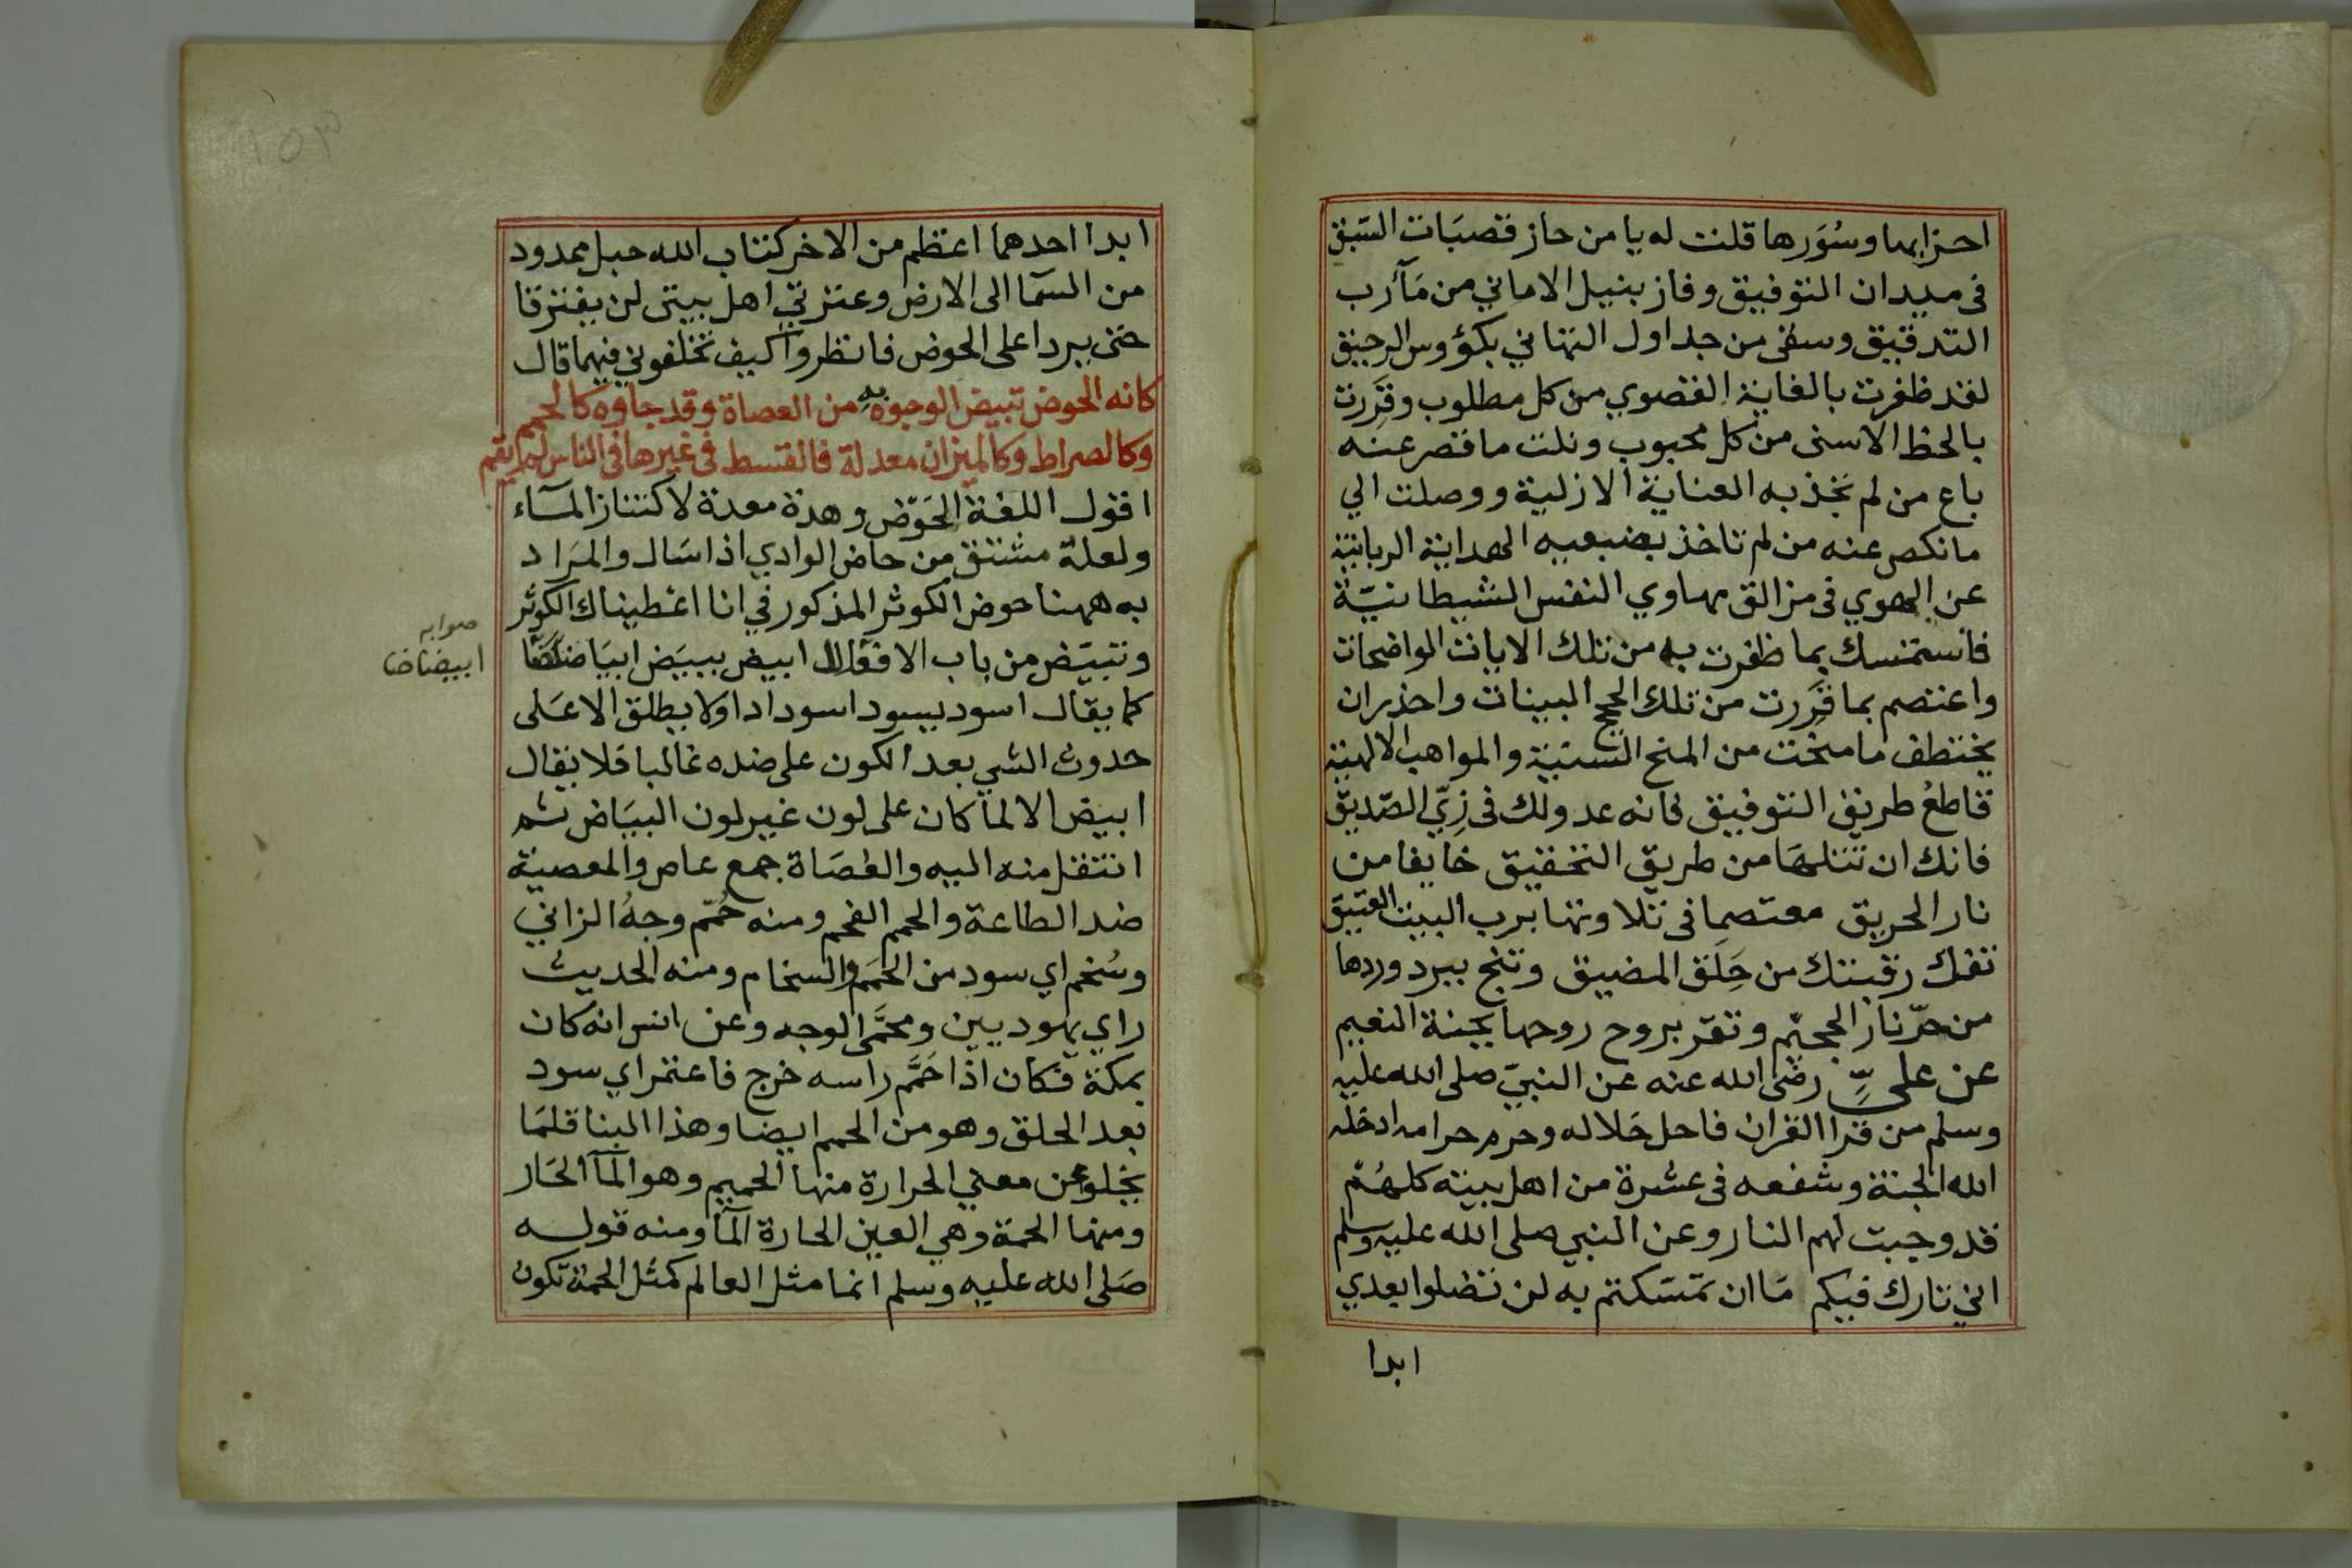 احزابها وسُوَرها قلت له يا من حاز قصبَات السَبق
فى ميدان التوفيق وفاز بنيل الاماني من مَآرب
التدقيق وسقى من جداول التهاني بكؤوس الرحيق
لقد ظفرت بالغاية القصوي من كل مطلوب وقَرِرت
بالحظ الاسنى من كل محبوب ونلت ما قصر عنه
باع من لم تجذبه العناية الازلية ووصلت الي
ما نكص عنه من لم تاخذ بضبعيه الهداية الربانية
عن الهوي فى مزالق مهاوي النفس الشيطانيّة
فاستمسك بما ظفرت به من تلك الايات الواضحات
واعتصم بما قَرِرت من تلك الحجج البينات واحذر ان
يختطف ما منحت من المنح السنية والمواهب الالهية
قاطعُ طريق التوفيق فانه عدو لك فى زِيّ الصّديق
فانك ان تتلهَا من طريق التحقيق خايفا من
نار الحريق معتصما فى تلاوتها برب البيت العتيق
تفك رقبتك من حِلَق المضيق وتنج ببرد وردها
من حرّ نار الجحيم وتقر بروح روحها بجنة النعيم
عن علىٍّ رضى الله عنه عن النبيّ صلى الله عليه
وسلم من قرا القران فاحل حَلاله وحرم حرامه ادخله
الله الجنة وشفعه فى عشرة من اهل بيته كلهُم
قد وجبت لهم النار وعن النبي صلى الله عليه وسلم
اني تارك فيكم مَا ان تمسَكتم به لن تضلوا بعدي
ابدا
ابدا احدهما اعظم من الاخر كتاب الله حبل ممدود
من السمآ الى الارض وعترتي اهل بيتى لن يفترقا
حتى يردا على الحوض فانظروا كيف تخلفوني فيهما قال
كانه الحوض تبيض الوجوه به من العصاة وقد جاوه كالحمم
وكالصراط وكالميزان معدلة فالقسط فى غيرها فى الناس لم يقم
اقول اللغة الحَوْض وهدة معدة لاكتناز المآء
ولعلهّ مشتق من حاض الوادي اذا سَال والمرَاد
به ههنا حوض الكوثر المذكور في انا اعطيناك الكوثر
وتبيَض من باب الافعَلال ابيض يبيَض ابيَاضاضًا
صوابه
ابيضاضا
كما يقال اسود يسود اسوداداولا يطلق الا عَلى
حدوث الشي بعد الكون على ضده غالبا فلا يقال
ابيض الا لما كان على لون غير لون البيَاض ثم
انتقل منه اليه والعُصَاة جمع عاص والمعصية
ضد الطاعة والحمم الفحم ومنه حُمّم وجهُ الزاني
وسُخم اي سود من الحُمَم والسخام ومنه الحديث
راي يهوديين ومحمَّمى الوجه وعن انس انه كان
بمكة فكان اذا حَمَّم راسه خرج فاعتمر اي سود
بعد الحلق وهو من الحمم ايضا وهذا البنا قلمَا
يخلو عن معني الحرارة منها الحميم وهو المآ الحَار
ومنها الحمة وهي العين الحارة المآ ومنه قوله
صَلى الله عليه وسلم انما مثل العالم كمثل الحمة تكون